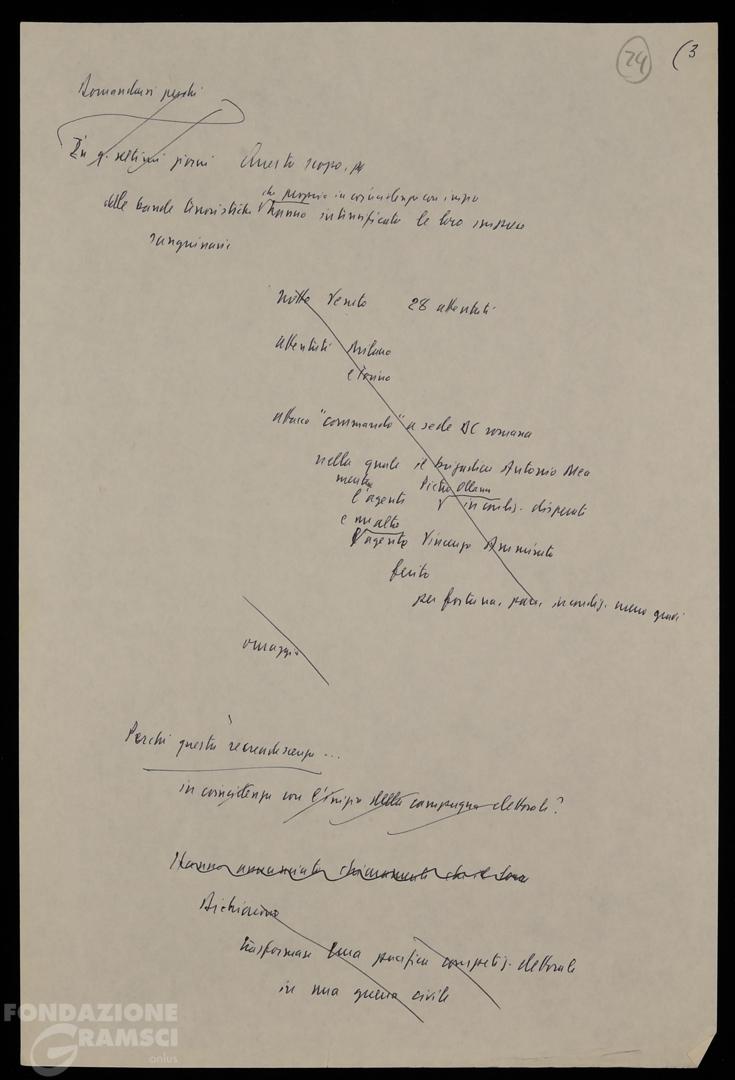 24 (3
Domandarsi perché
In q. ultimi giorni Questo scopo,
che proprio in coincidenza con inizio
delle bande terroristiche hanno intensificato le loro imprese
sanguinarie
notte Veneto 28 attentati
attentati Milano
e Torino
attacco "commando" a sede DC romana
nella quale il brigadiere Antonio Mea
morto Pietro Ollanu
l'agente in condiz. disperate
e morto
l'agente Vincenzo Ammirata
ferito
per fortuna, pare, in condiz. meno gravi
omaggio
Perché questa recrudescenza ...
in coincidenza con l'inizio della campagna elettorale?
Hanno annunciato chiaramente che il loro
Dichiarano
trasformare una pacifica competiz. elettorale
in una guerra civile
FONDAZIONE
GRAMSCI
onlus